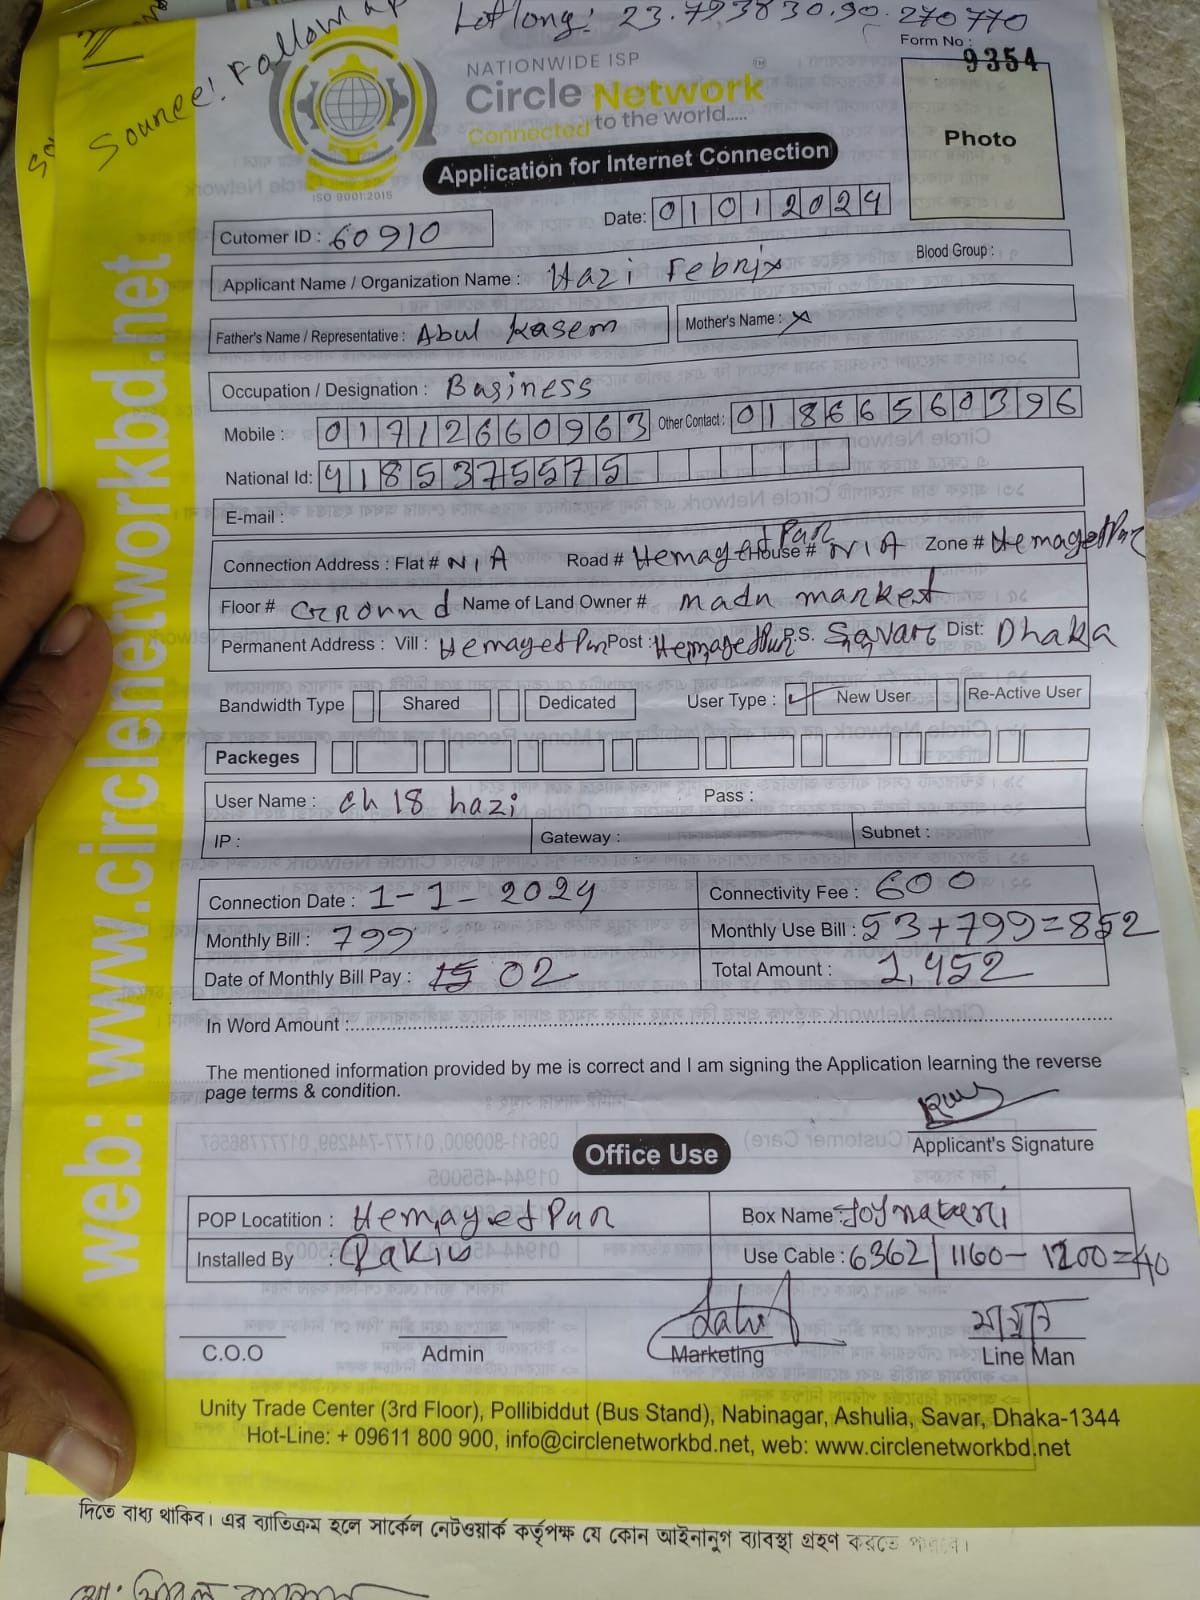 Lat long: 23.793830.90.270770
Source: Follow up
Form No :
9354
NATIONWIDE ISP
Circle Network
Connected to the world.....
ISO 9001:2015
Photo
Application for Internet Connection
Date: 01012024
Cutomer ID : 60910
Applicant Name / Organization Name : Hazi Febrix Blood Group :
Father's Name / Representative : Abul Kasem Mother's Name : x
Occupation / Designation : Business
Mobile : 01712660963 Other Contact : 01866560396
National Id: 4185375575
E-mail :
Connection Address : Flat # N/A Road # Hemayet Pur House # N/A Zone # Hemayet Pur
Floor # Ground Name of Land Owner # madu market
Permanent Address : Vill : Hemayet Pur Post : Hemayet Pur P.S. Savar Dist: Dhaka
Bandwidth Type Shared Dedicated User Type : ✓ New User Re-Active User
Packeges
User Name : ch 18 hazi Pass :
IP : Gateway : Subnet :
Connection Date : 1-1-2024 Connectivity Fee : 600
Monthly Bill : 799 Monthly Use Bill : 53+799=852
Date of Monthly Bill Pay : 15 02 Total Amount : 1,452
In Word Amount :
The mentioned information provided by me is correct and I am signing the Application learning the reverse
page terms & condition.
Applicant's Signature
Office Use
POP Locatition : Hemayet Pur Box Name :
Installed By : Rakib Use Cable : 6362/1160-1200=40
C.O.O Admin Marketing Line Man
Unity Trade Center (3rd Floor), Pollibiddut (Bus Stand), Nabinagar, Ashulia, Savar, Dhaka-1344
Hot-Line: + 09611 800 900, info@circlenetworkbd.net, web: www.circlenetworkbd.net
web: www.circlenetworkbd.net
দিতে বাধ্য থাকিব। এর ব্যতিক্রম হলে সার্কেল নেটওয়ার্ক কর্তৃপক্ষ যে কোন আইনানুগ ব্যাবস্থা গ্রহণ করতে পারবে।